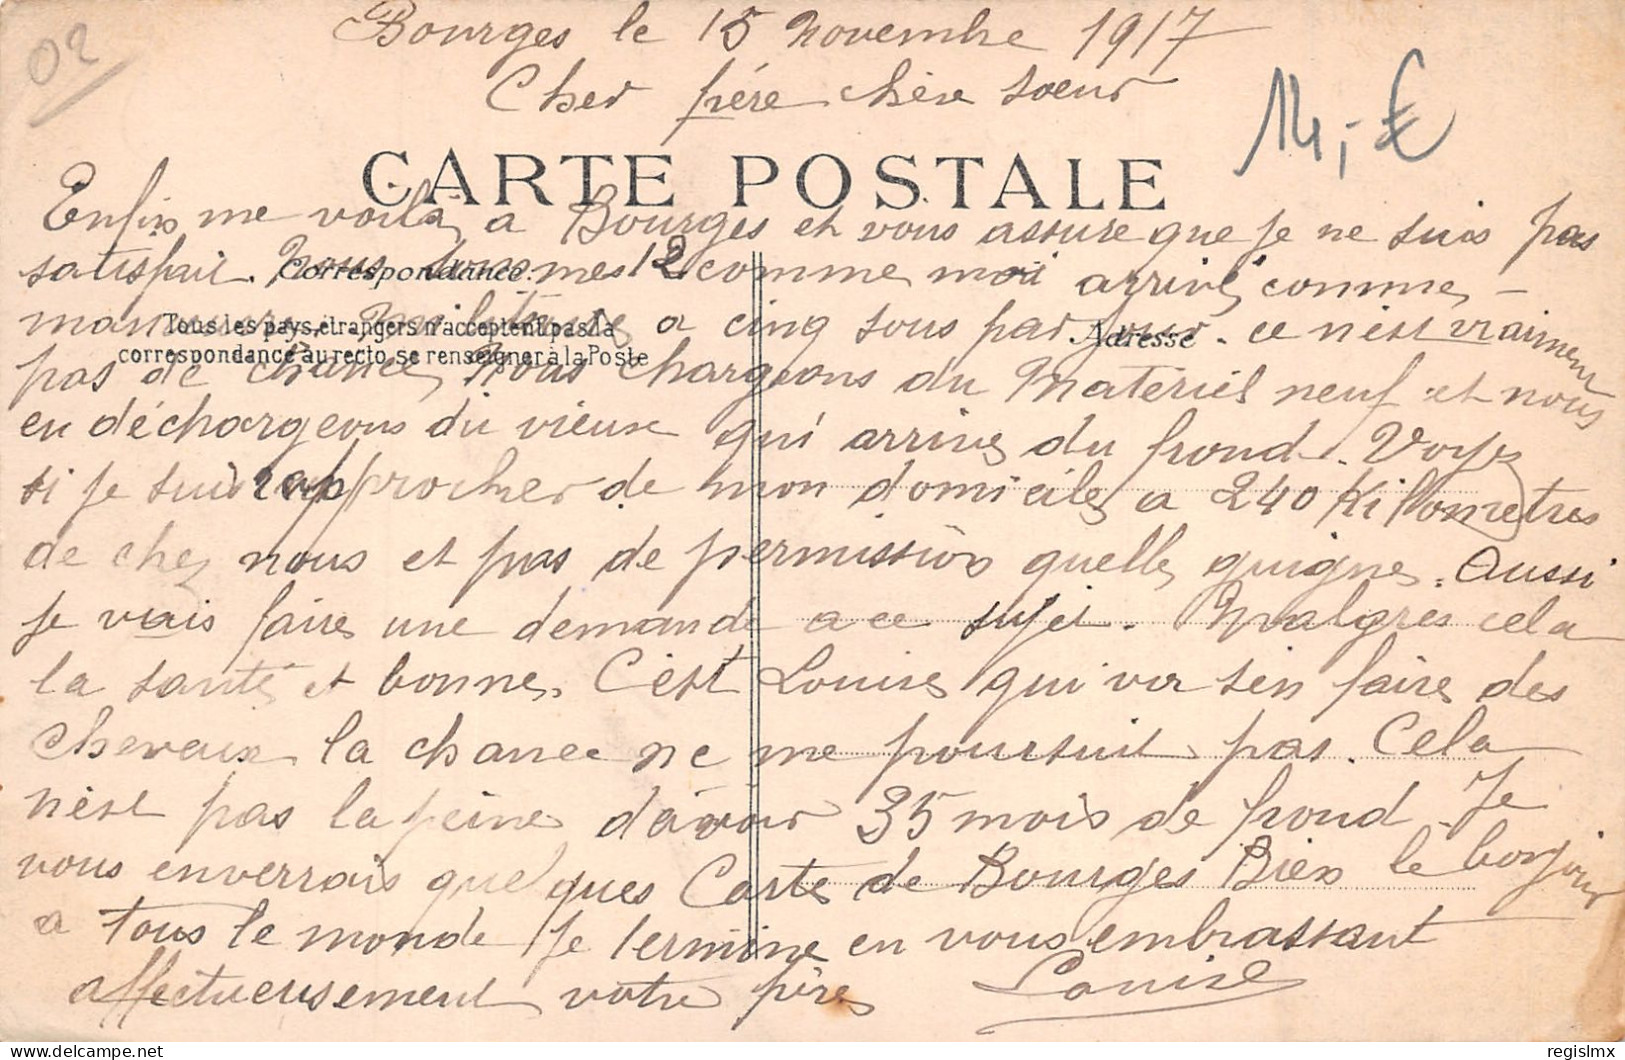 02
Bourges le 15 Novembre 1917
Cher frére chère soeur
14,- €
CARTE POSTALE
Enfin me voilà a Bourges et vous assure que je ne suis pas
satisfait. Nous sommes 12 comme moi arrivé comme
Correspondance.
manoeuvre militaire a cinq sous par jour. ce n'est vraiment
Tous les pays étrangers n'acceptent pas la
correspondance au recto se renseigner à la Poste
Adresse
pas de chance, Nous chargeons du Matériel neuf et nous
en déchargeons du vieux qui arrive du frond. Voyez
si je suis rapprocher de mon domicile a 240 Killometres
de chez nous et pas de permission quelle guigne. Aussi
je vais faire une demande a ce sujet. Malgres cela
la santé et bonne. C'est Louise qui va sen faire des
cheveux la chance ne me poursuit pas. Cela
n'est pas la peine d'avoir 35 mois de frond. Je
vous enverrais quelques Carte de Bourges Bien le bonjour
a tous le monde Je termine en vous embrassant
affectueusement votre frère
regislmx